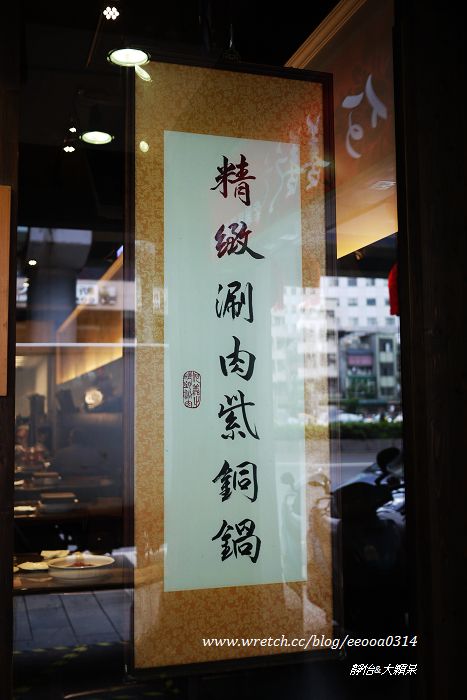 精緻涮肉紫銅鍋
www.wretch.cc/blog/eeooa0314
靜怡&大顆呆